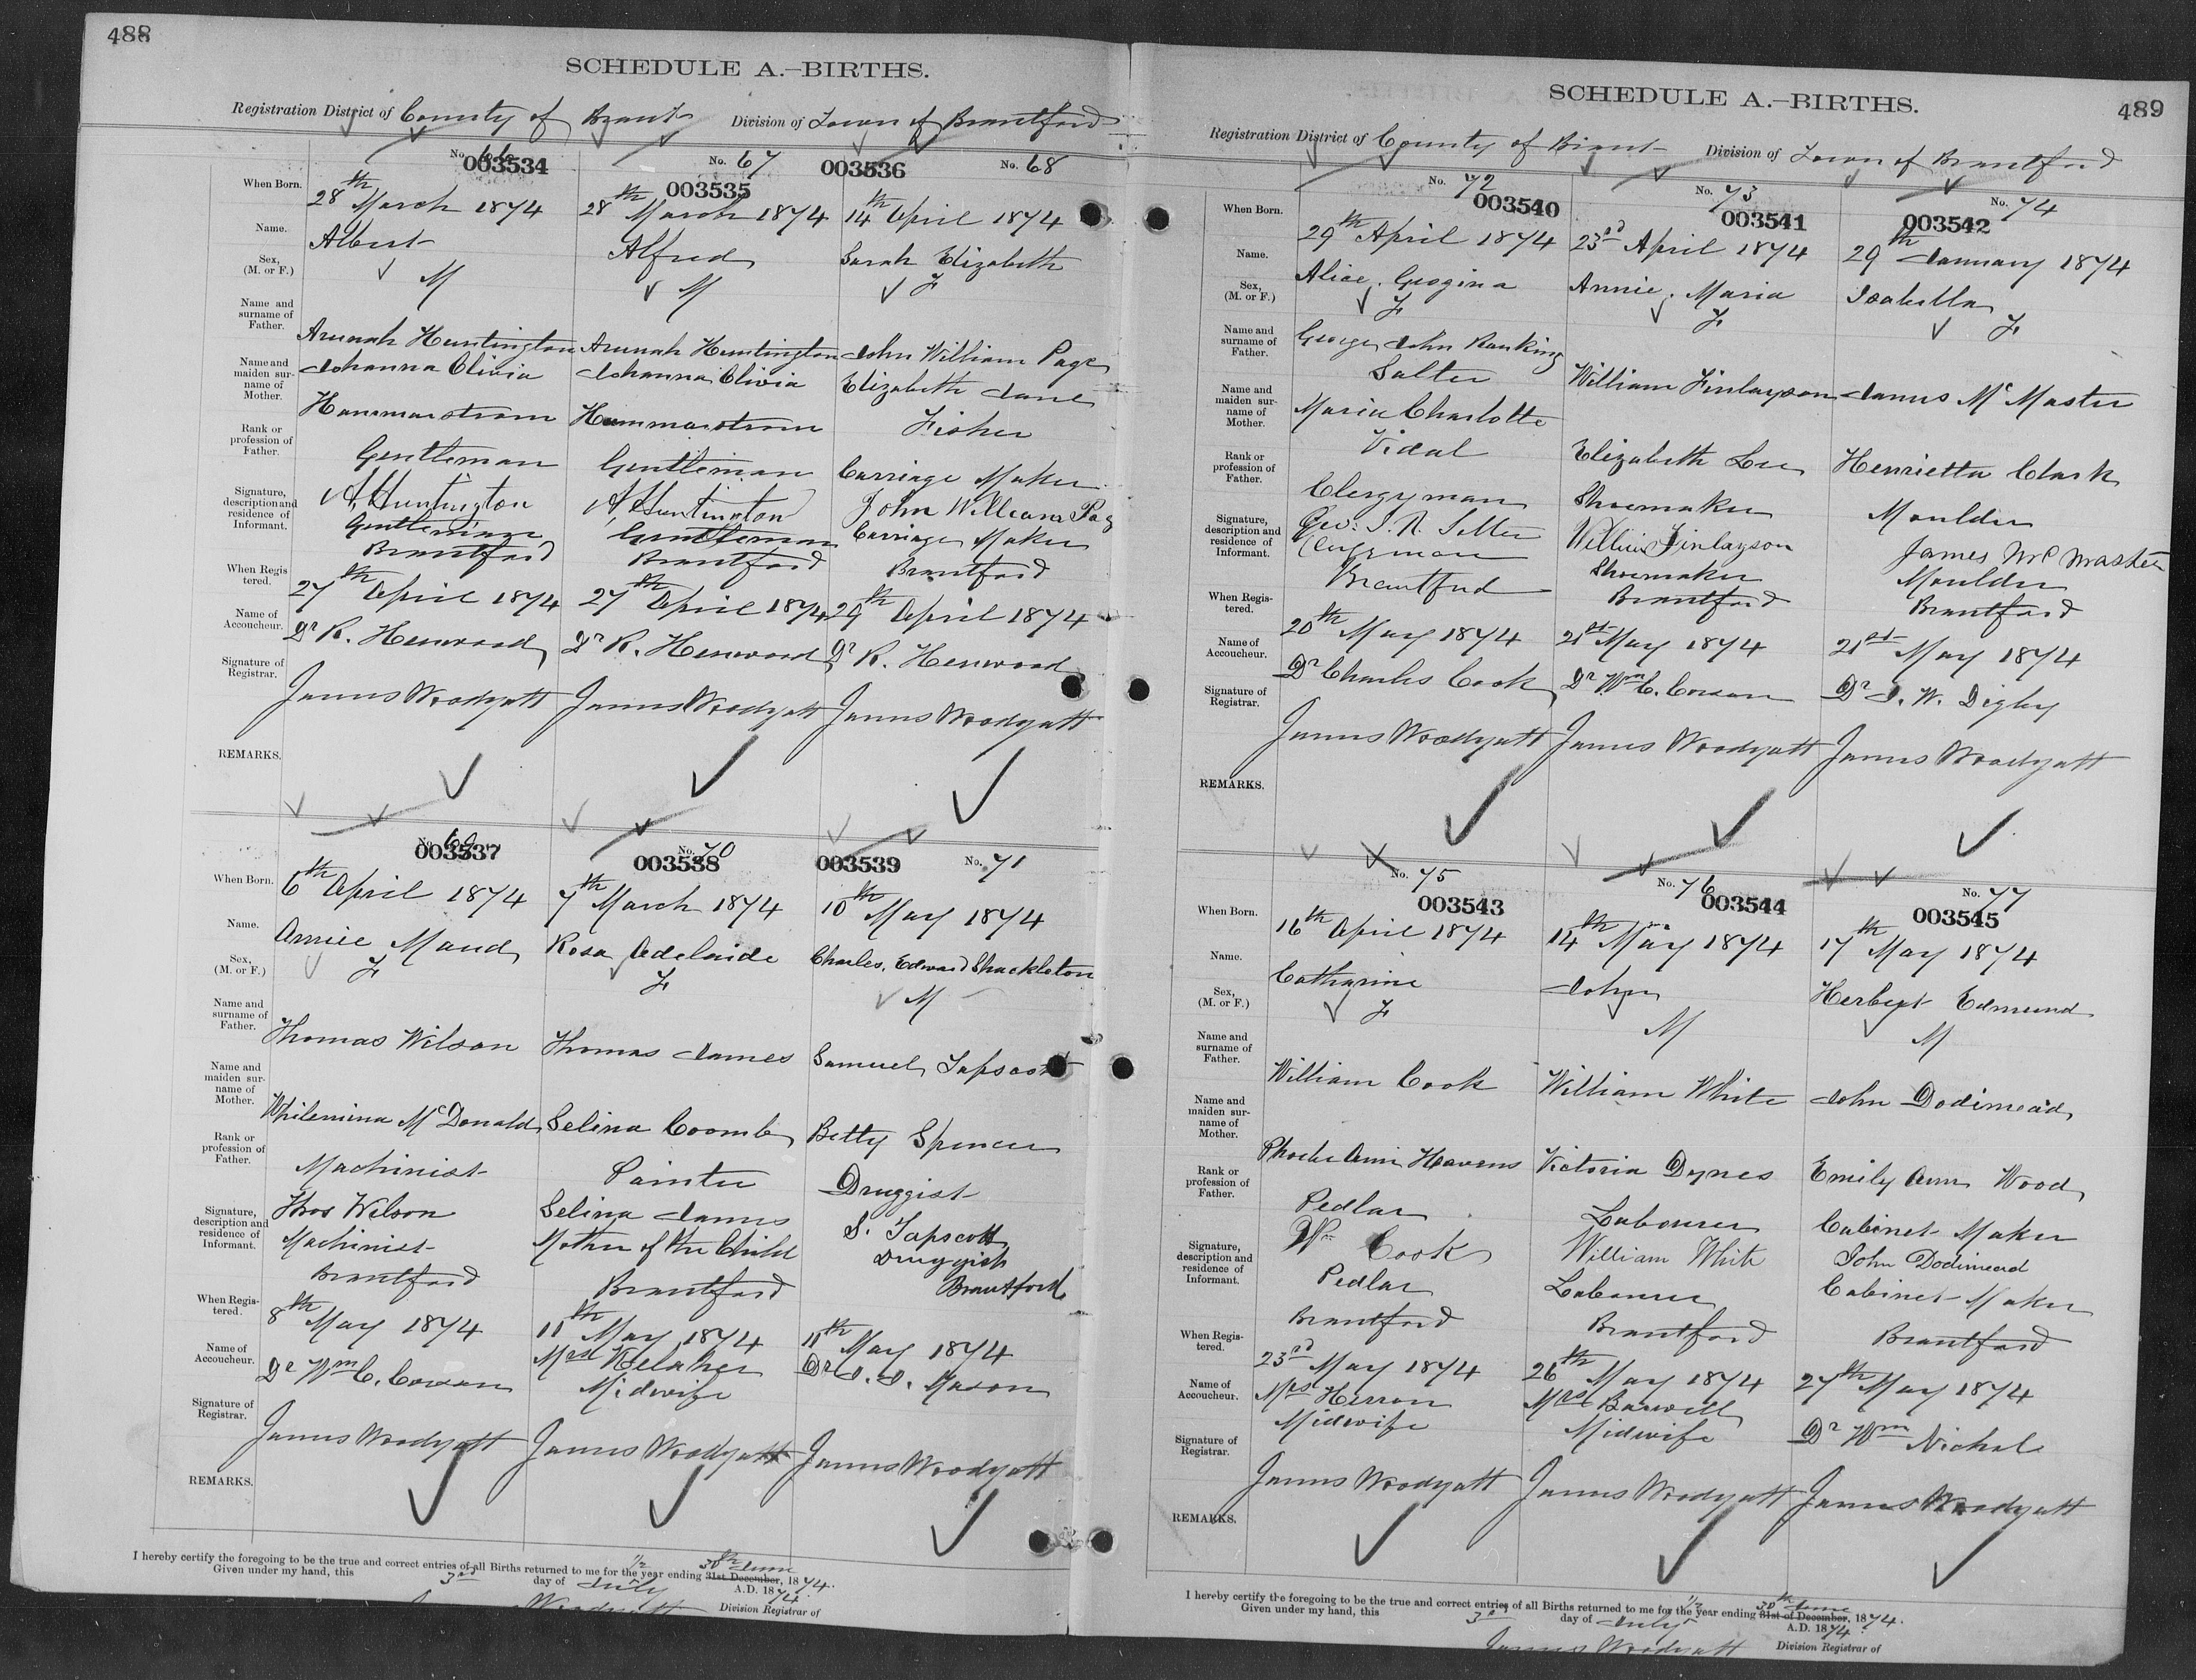 488
SCHEDULE A.—BIRTHS.
Registration District of County of Brant Division of Town of Brantford
No. 66 003534
No. 67 003535
003536 No. 68
When Born.
28th March 1874
28th March 1874
14th April 1874
Name.
Albert
Alfred
Sarah Elizabeth
Sex, (M. or F.)
M
M
F
Name and surname of Father.
Arunah Huntington
Arunah Huntington
John William Page
Name and maiden surname of Mother.
Johanna Olivia
Hammarstrom
Johanna Olivia
Hammarstrom
Elizabeth Jane
Fisher
Rank or profession of Father.
Gentleman
Gentleman
Carriage Maker
Signature, description and residence of Informant.
A. Huntington
Gentleman
Brantford
A. Huntington
Gentleman
Brantford
John William Pag
Carriage Maker
Brantford
When Registered.
27th April 1874
27th April 1874
29th April 1874
Name of Accoucheur.
Dr R. Henwood
Dr R. Henwood
Dr R. Henwood
Signature of Registrar.
James Woodyatt
James Woodyatt
James Woodyatt
REMARKS.
No. 69 003537
No. 70 003538
003539 No. 71
When Born.
6th April 1874
7th March 1874
10th May 1874
Name.
Annie Maud
Rosa Adelaide
Charles Edward Shackleton
Sex, (M. or F.)
F
F
M
Name and surname of Father.
Thomas Wilson
Thomas James
Samuel Tapscott
Name and maiden surname of Mother.
Whilemina McDonald
Selina Coombs
Betty Spencer
Rank or profession of Father.
Machinist
Painter
Druggist
Signature, description and residence of Informant.
Thos Wilson
Machinist
Brantford
Selina James
Mother of the Child
Brantford
S. Tapscott
Druggist
Brantford
When Registered.
8th May 1874
11th May 1874
11th May 1874
Name of Accoucheur.
Dr Wm C. Corson
Mrs Kelaher
Midwife
Dr J. J. Mason
Signature of Registrar.
James Woodyatt
James Woodyatt
James Woodyatt
REMARKS.
I hereby certify the foregoing to be the true and correct entries of all Births returned to me for the 1/2 year ending 31st December, 30th June 1874.
Given under my hand, this 3rd day of July A.D. 1874.
Woodyatt Division Registrar of
489
SCHEDULE A.—BIRTHS.
Registration District of County of Brant Division of Town of Brantford
No. 72 003540
No. 73 003541
003542 No. 74
When Born.
29th April 1874
23rd April 1874
29th January 1874
Name.
Alice Gergina
Annie Maria
Isabella
Sex, (M. or F.)
F
F
F
Name and surname of Father.
George John Ranking
Salter
William Finlayson
James McMaster
Name and maiden surname of Mother.
Maria Charlotte
Vidal
Elizabeth Lee
Henrietta Clark
Rank or profession of Father.
Clergyman
Shoemaker
Moulder
Signature, description and residence of Informant.
Geo: J. R. Salter
Clergyman
Brantford
William Finlayson
Shoemaker
Brantford
James McMaster
Moulder
Brantford
When Registered.
20th May 1874
21st May 1874
21st May 1874
Name of Accoucheur.
Dr Charles Cook
Dr Wm C. Corson
Dr J. W. Digby
Signature of Registrar.
James Woodyatt
James Woodyatt
James Woodyatt
REMARKS.
No. 75 003543
No. 76 003544
No. 77 003545
When Born.
16th April 1874
14th May 1874
17th May 1874
Name.
Catharine
John
Herbert Edmund
Sex, (M. or F.)
F
M
M
Name and surname of Father.
William Cook
William White
John Dodimead
Name and maiden surname of Mother.
Phoebe Ann Havens
Victoria Dynes
Emily Ann Wood
Rank or profession of Father.
Pedlar
Labourer
Cabinet Maker
Signature, description and residence of Informant.
Wm Cook
Pedlar
Brantford
William White
Labourer
Brantford
John Dodimead
Cabinet Maker
Brantford
When Registered.
23rd May 1874
26th May 1874
27th May 1874
Name of Accoucheur.
Mrs Herron
Midwife
Mrs Barwell
Midwife
Dr Wm Nichol
Signature of Registrar.
James Woodyatt
James Woodyatt
James Woodyatt
REMARKS.
I hereby certify the foregoing to be the true and correct entries of all Births returned to me for the 1/2 year ending 31st of December, 30th June 1874.
Given under my hand, this 3rd day of July A.D. 1874.
James Woodyatt Division Registrar of